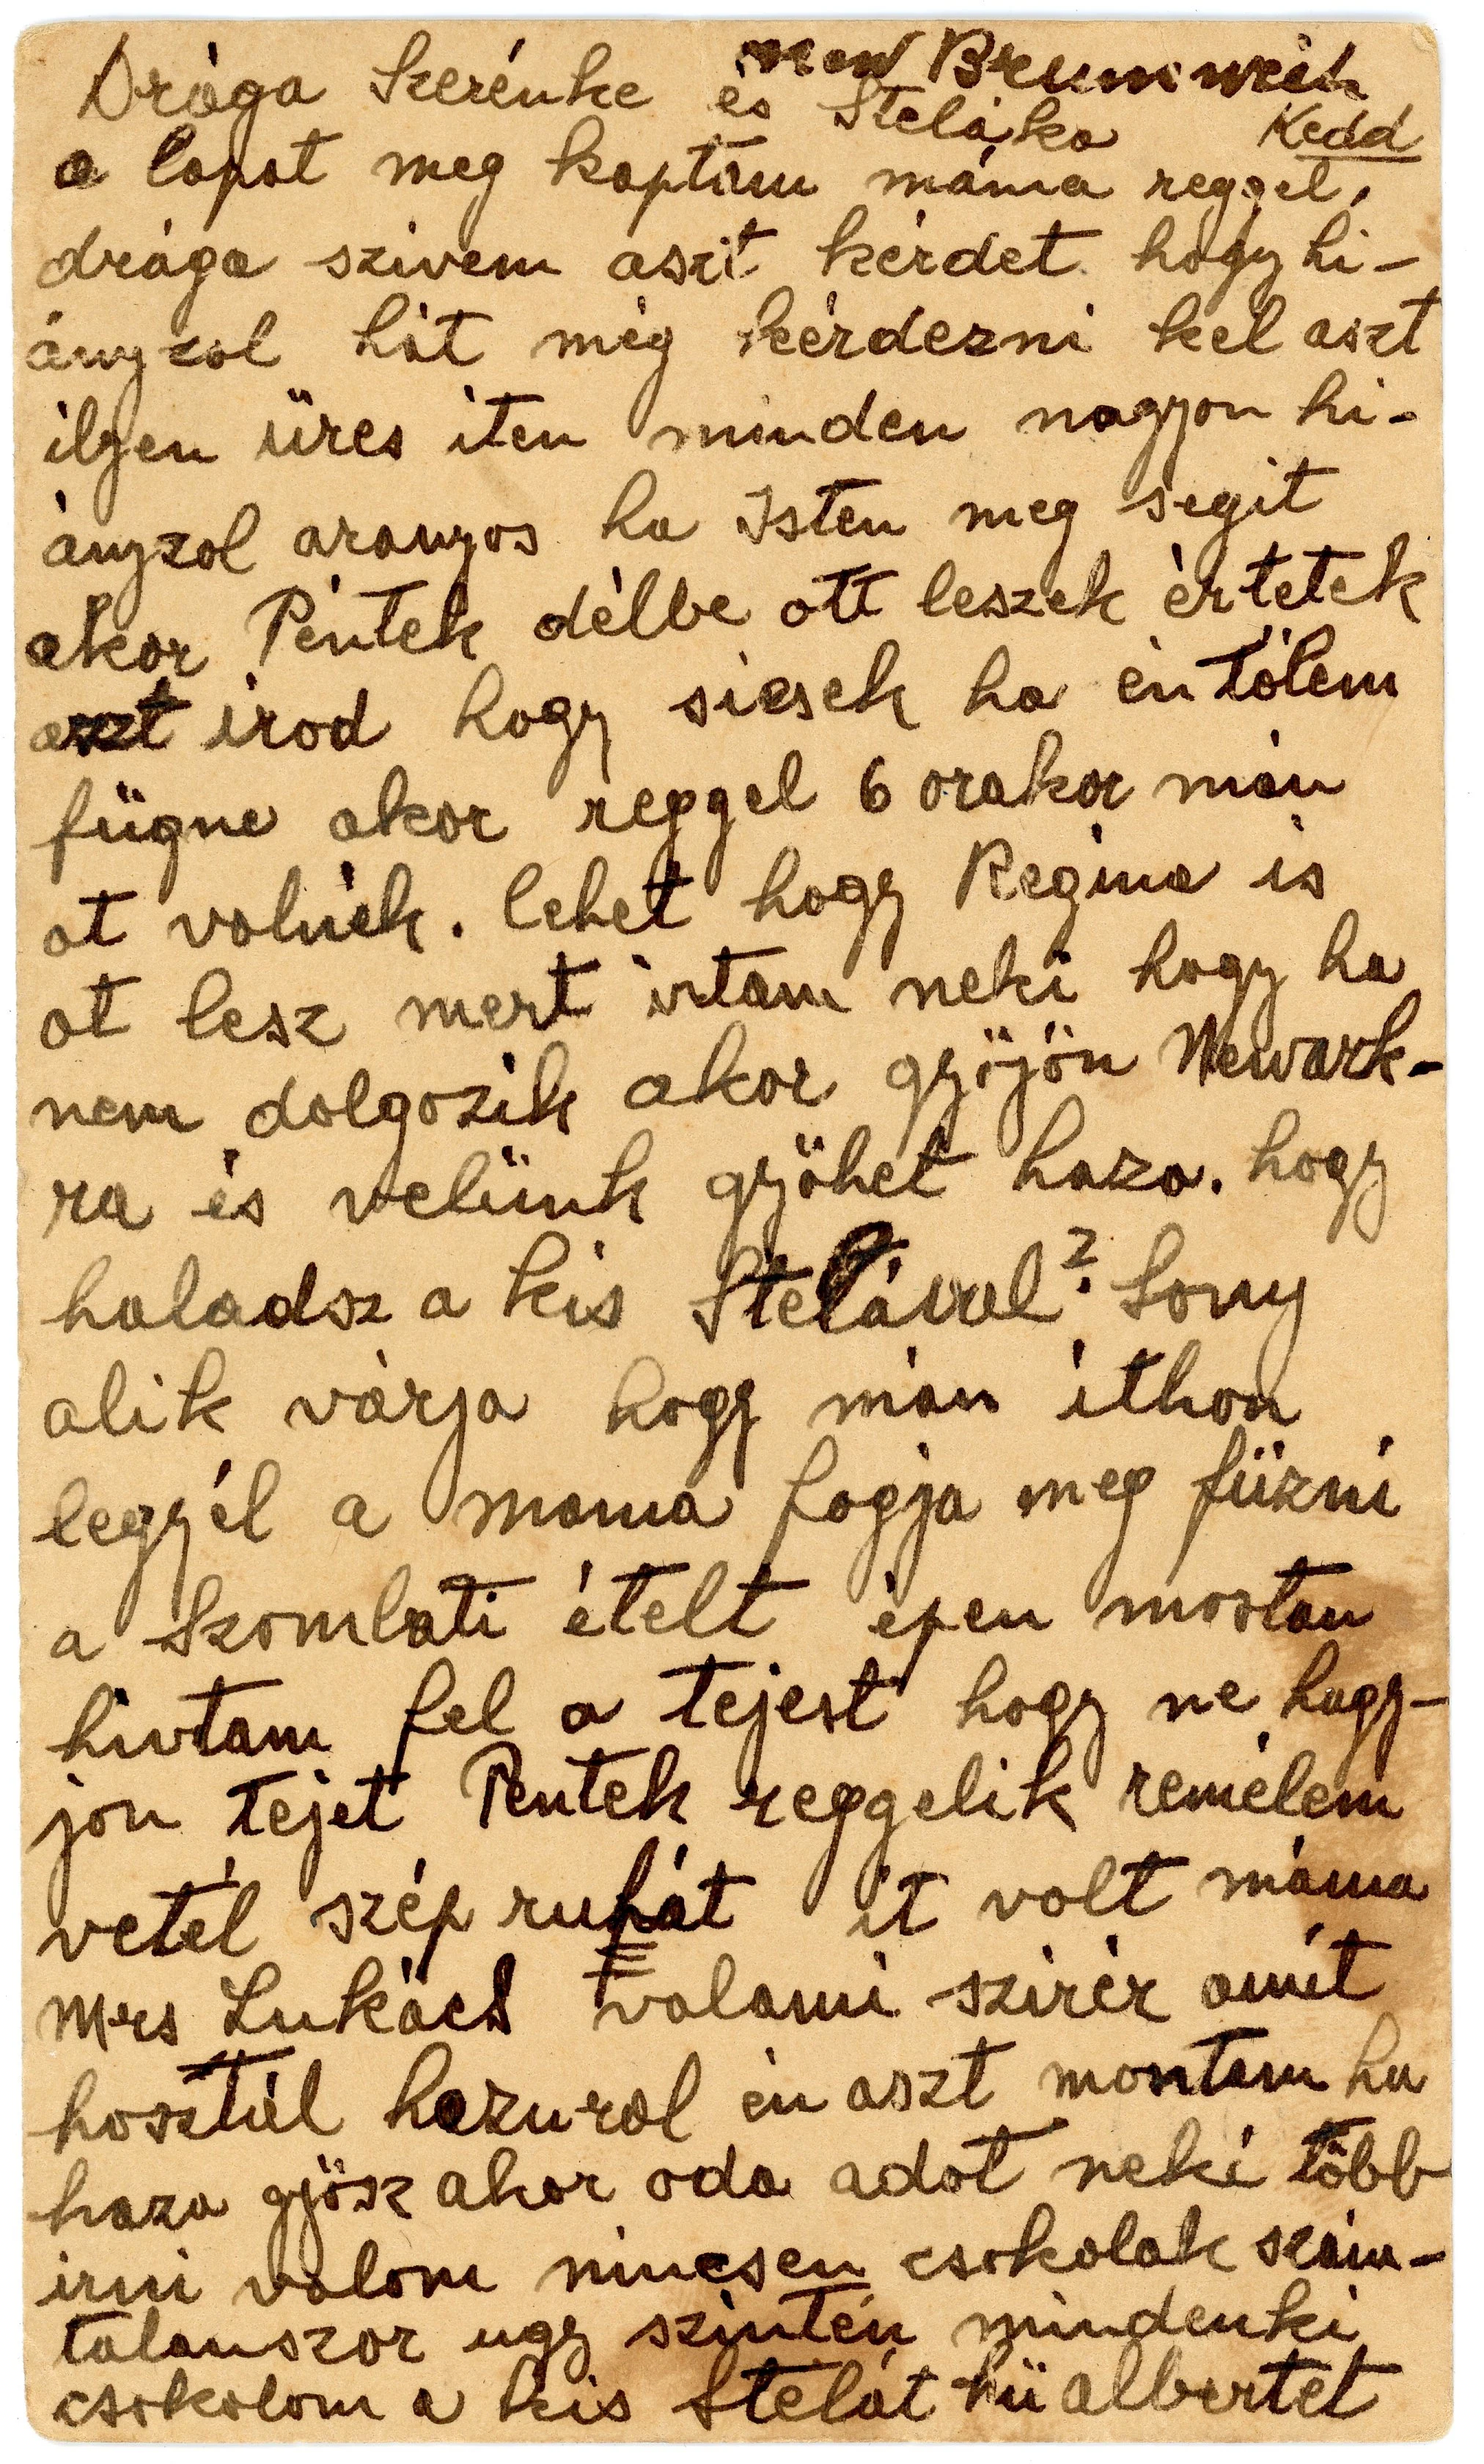 new Brunswick
Drága Szerénke és Steláka Kedd
a lapot meg kaptam máma reggel,
drága szivem aszt kérdet hogy hi-
ányzol hát még kérdezni kel aszt
ilyen üres iten minden nagyon hi-
ányzol aranyos ha Isten meg segit
akor Péntek délbe ott leszek értetek
aszt irod hogy sicsek ha én tölem
fügne akor reggel 6 orakor mán
ot volnék. lehet hogy Regina is
ot lesz mert irtam neki hogy ha
nem dolgozik akor gyöjön Newark-
ra és velünk gyöhet haza. hogy
haladsz a kis Stelával? Sony
alik várja hogy mán ithon
legyél a mama fogja meg füzni
a Szombati ételt épen mostan
hivtam fel a tejest hogy ne hagy-
jon tejet Pentek reggelik remélem
vetél szép ruhát it volt máma
Mrs Lukács valami szirér amit
hosztál hazurol én aszt montam ha
haza gyösz akor oda adot neki több
irni valom nincsen csokolak szám-
talanszor ugy szintén mindenki
csokolom a kis Stelát hü albertet